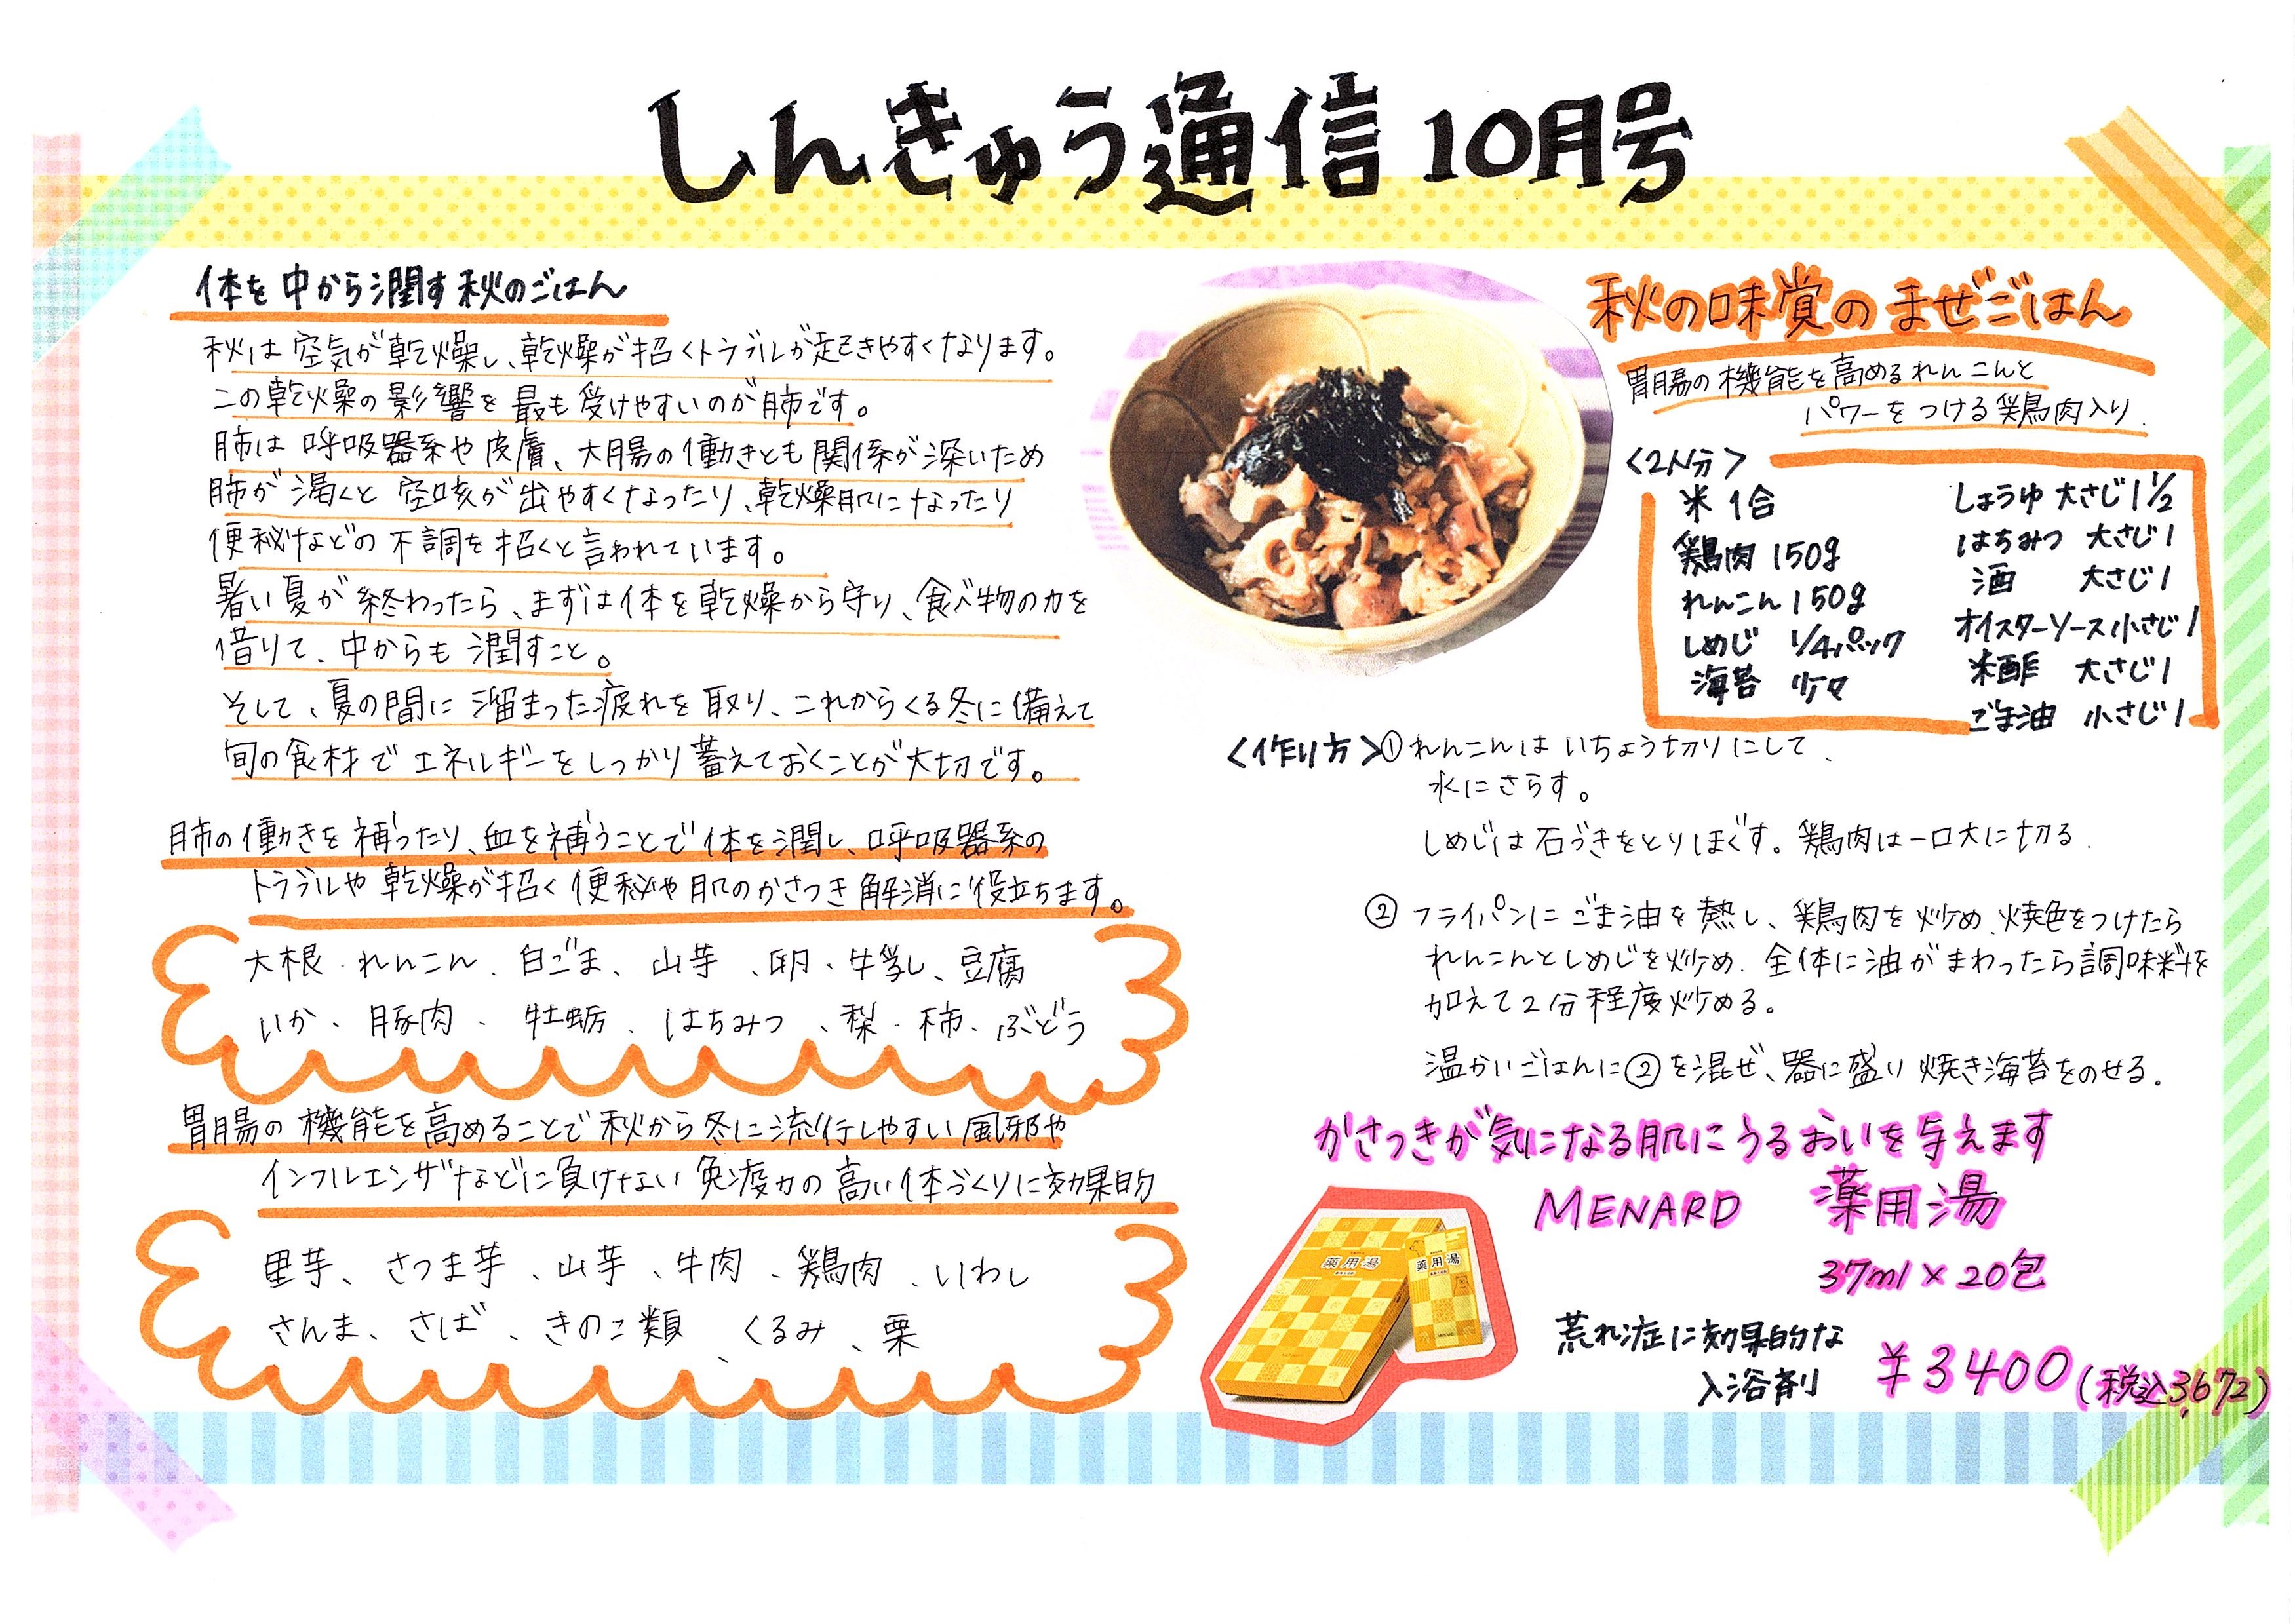 しんきゅう通信 10月号
体を中から潤す秋のごはん
秋は空気が乾燥し、乾燥が招くトラブルが起きやすくなります。
この乾燥の影響を最も受けやすいのが肺です。
肺は呼吸器系や皮膚、大腸の働きとも関係が深いため
肺が渇くと空咳が出やすくなったり、乾燥肌になったり
便秘などの不調を招くと言われています。
暑い夏が終わったら、まずは体を乾燥から守り、食べ物の力を
借りて、中からも潤すこと。
そして、夏の間に溜まった疲れを取り、これからくる冬に備えて
旬の食材でエネルギーをしっかり蓄えておくことが大切です。
肺の働きを補ったり、血を補うことで体を潤し、呼吸器系の
トラブルや乾燥が招く便秘や肌のかさつき解消に役立ちます。
大根、れんこん、白ごま、山芋、卵、牛乳、豆腐
いか、豚肉、牡蛎、はちみつ、梨、柿、ぶどう
胃腸の機能を高めることで秋から冬に流行しやすい風邪や
インフルエンザなどに負けない免疫力の高い体づくりに効果的
里芋、さつま芋、山芋、牛肉、鶏肉、いわし
さんま、さば、きのこ類、くるみ、栗
秋の味覚のまぜごはん
胃腸の機能を高めるれんこんと
パワーをつける鶏肉入り
<2人分>
米 1合
鶏肉 150g
れんこん 150g
しめじ 1/4パック
海苔 少々
しょうゆ 大さじ1 1/2
はちみつ 大さじ1
酒 大さじ1
オイスターソース 小さじ1
米酢 大さじ1
ごま油 小さじ1
<作り方>①れんこんはいちょう切りにして、
水にさらす。
しめじは石づきをとりほぐす。鶏肉は一口大に切る.
② フライパンにごま油を熱し、鶏肉を炒め、焼色をつけたら
れんこんとしめじを炒め、全体に油がまわったら調味料を
加えて2分程度炒める。
温かいごはんに②を混ぜ、器に盛り焼き海苔をのせる.
かさつきが気になる肌にうるおいを与えます
MENARD 薬用湯
37ml×20包
薬用湯
薬用湯
荒れ症に効果的な
入浴剤
¥3400(税込3,672)